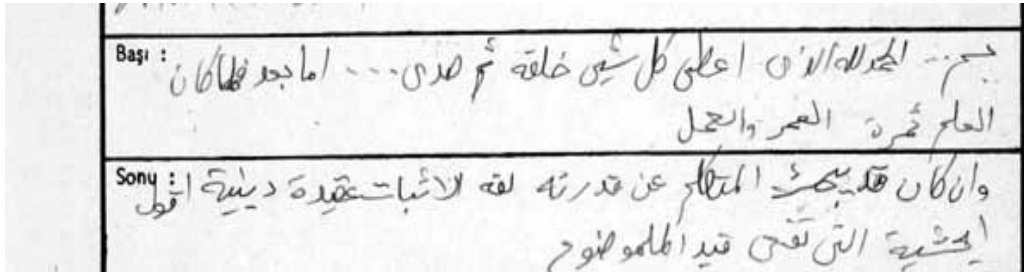 Başı : بسم... الحمد لله الذى اعطى كل شيئ خلقه ثم هدى... اما بعد فلما كان
العلم ثمرة العمر والعمل
Sonu : وان كان قد يبحث المتكلم عن قدرته لاثبات عقيدة دينية اقول
الحيثية التى قيد الموضوع